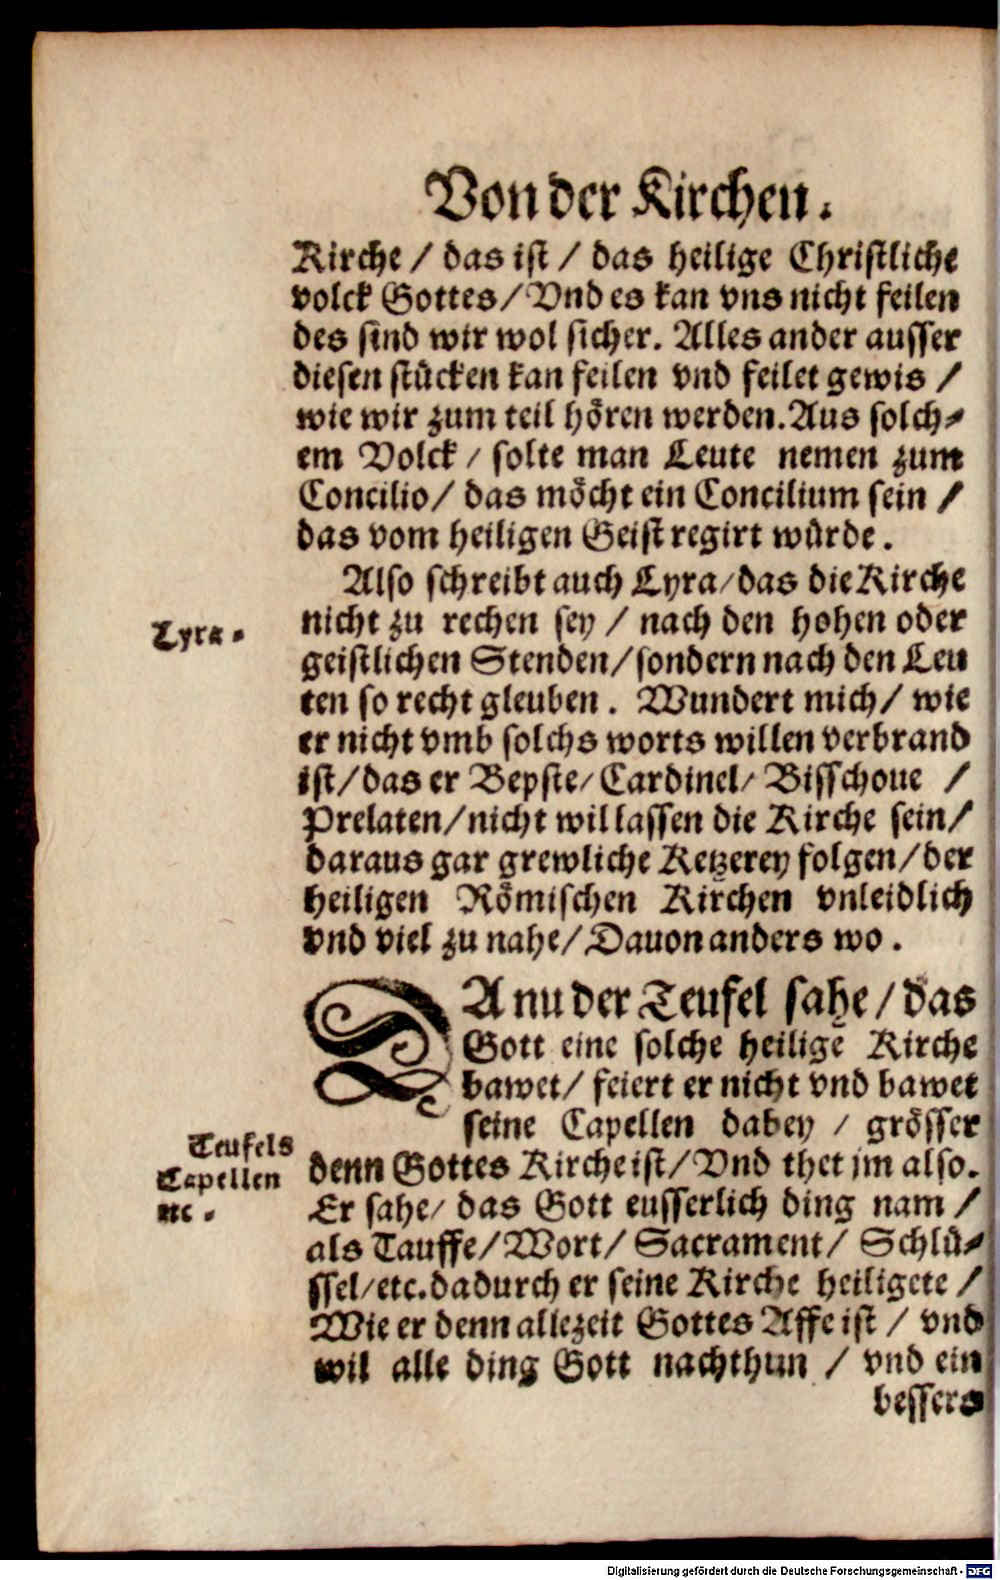 Von der Kirchen.
Kirche / das ist / das heilige Christliche
volck Gottes / Vnd es kan vns nicht feilen
des sind wir wol sicher. Alles ander ausser
diesen stücken kan feilen vnd feilet gewis /
wie wir zum teil hören werden. Aus solch⸗
em Volck / solte man Leute nemen zum
Concilio / das möcht ein Concilium sein /
das vom heiligen Geist regirt würde.
Also schreibt auch Lyra / das die Kirche
nicht zu rechen sey / nach den hohen oder
geistlichen Stenden / sondern nach den Leu
ten so recht gleuben. Wundert mich / wie
er nicht vmb solchs worts willen verbrand
ist / das er Bepste / Cardinel / Bisschoue /
Prelaten / nicht wil lassen die Kirche sein /
daraus gar grewliche Ketzerey folgen / der
heiligen Römischen Kirchen vnleidlich
vnd viel zu nahe / Dauon anders wo.
Lyra.
DA nu der Teufel sahe / das
Gott eine solche heilige Kirche
bawet / feiert er nicht vnd bawet
seine Capellen dabey / grösser
denn Gottes Kirche ist / Vnd thet jm also.
Er sahe / das Gott eusserlich ding nam /
als Tauffe / Wort / Sacrament / Schlü⸗
ssel / etc. dadurch er seine Kirche heiligete /
Wie er denn allezeit Gottes Affe ist / vnd
wil alle ding Gott nachthun / vnd ein
bessers
Teufels
Capellen
ꝛc.
Digitalisierung gefördert durch die Deutsche Forschungsgemeinschaft - DFG